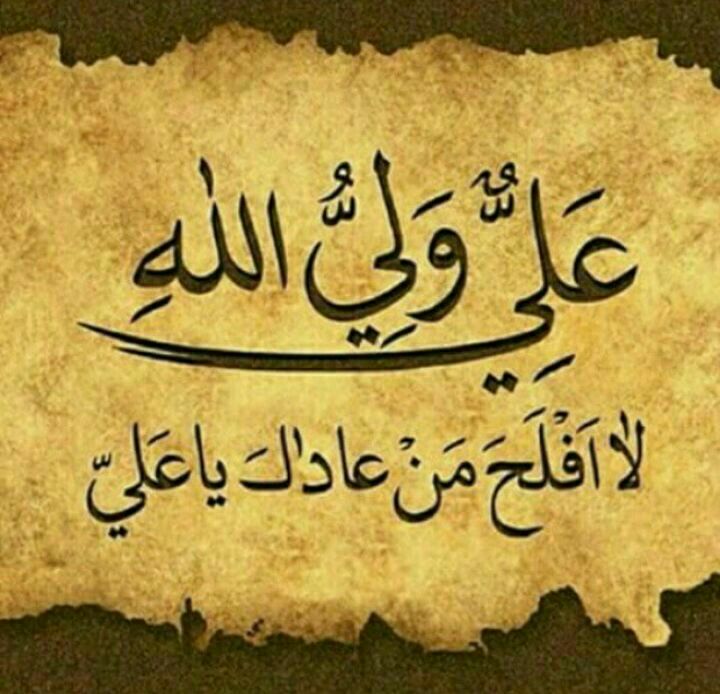 عَلِيٌّ وَلِيُّ اللهِ
لٰا اَفْلَحَ مَنْ عادٰاكَ يا عَليّ